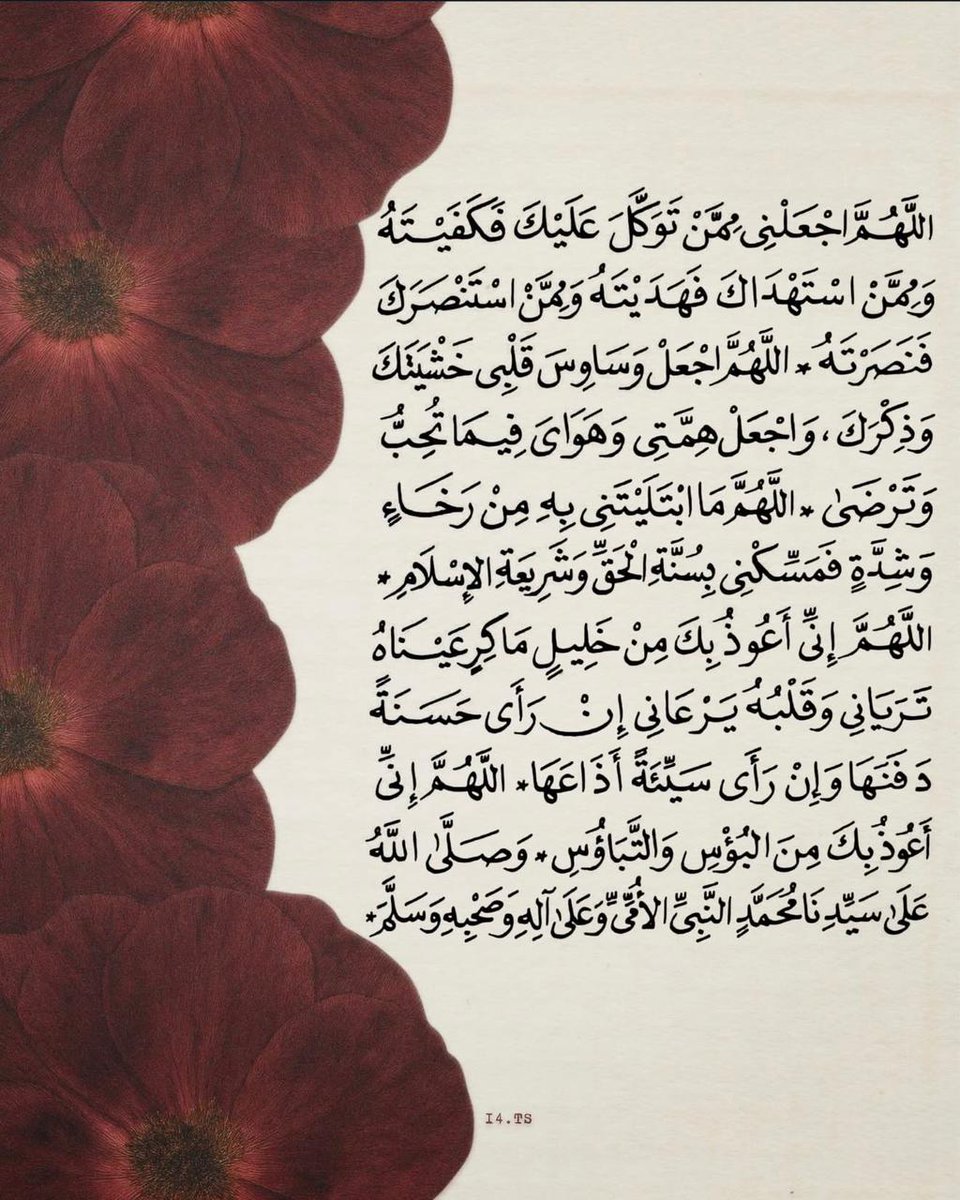 اللَّهُمَّ اجْعَلْنِى مِمَّنْ تَوَكَّلَ عَلَيْكَ فَكَفَيْتَهُ
وَمِمَّنْ اسْتَهْدَاكَ فَهَدَيْتَهُ وَمِمَّنْ اسْتَنْصَرَكَ
فَنَصَرْتَهُ * اللَّهُمَّ اجْعَلْ وَسَاوِسَ قَلْبِى خَشْيَتَكَ
وَذِكْرَكَ ، وَاجْعَلْ هِمَّتِى وَهَوَاىَ فِيمَا تُحِبُّ
وَتَرْضَىٰ * اللَّهُمَّ مَا ابْتَلَيْتَنِى بِهِ مِنْ رَخَاءٍ
وَشِدَّةٍ فَمَسِّكْنِى بِسُنَّةِ الْحَقِّ وَشَرِيعَةِ الإِسْلَامِ *
اللَّهُمَّ إِنِّى أَعُوذُ بِكَ مِنْ خَلِيلٍ مَاكِرٍ عَيْنَاهُ
تَرَيَانِى وَقَلْبُهُ يَرْعَانِى إِنْ رَأَى حَسَنَةً
دَفَنَهَا وَإِنْ رَأَى سَيِّئَةً أَذَاعَهَا * اللَّهُمَّ إِنِّى
أَعُوذُ بِكَ مِنَ البُؤْسِ وَالتَّبَاؤُسِ * وَصَلَّىٰ اللَّهُ
عَلَىٰ سَيِّدِنَا مُحَمَّدٍ النَّبِىِّ الأُمِّىِّ وَعَلَىٰ آلِهِ وَصَحْبِهِ وَسَلَّمَ *
14.TS